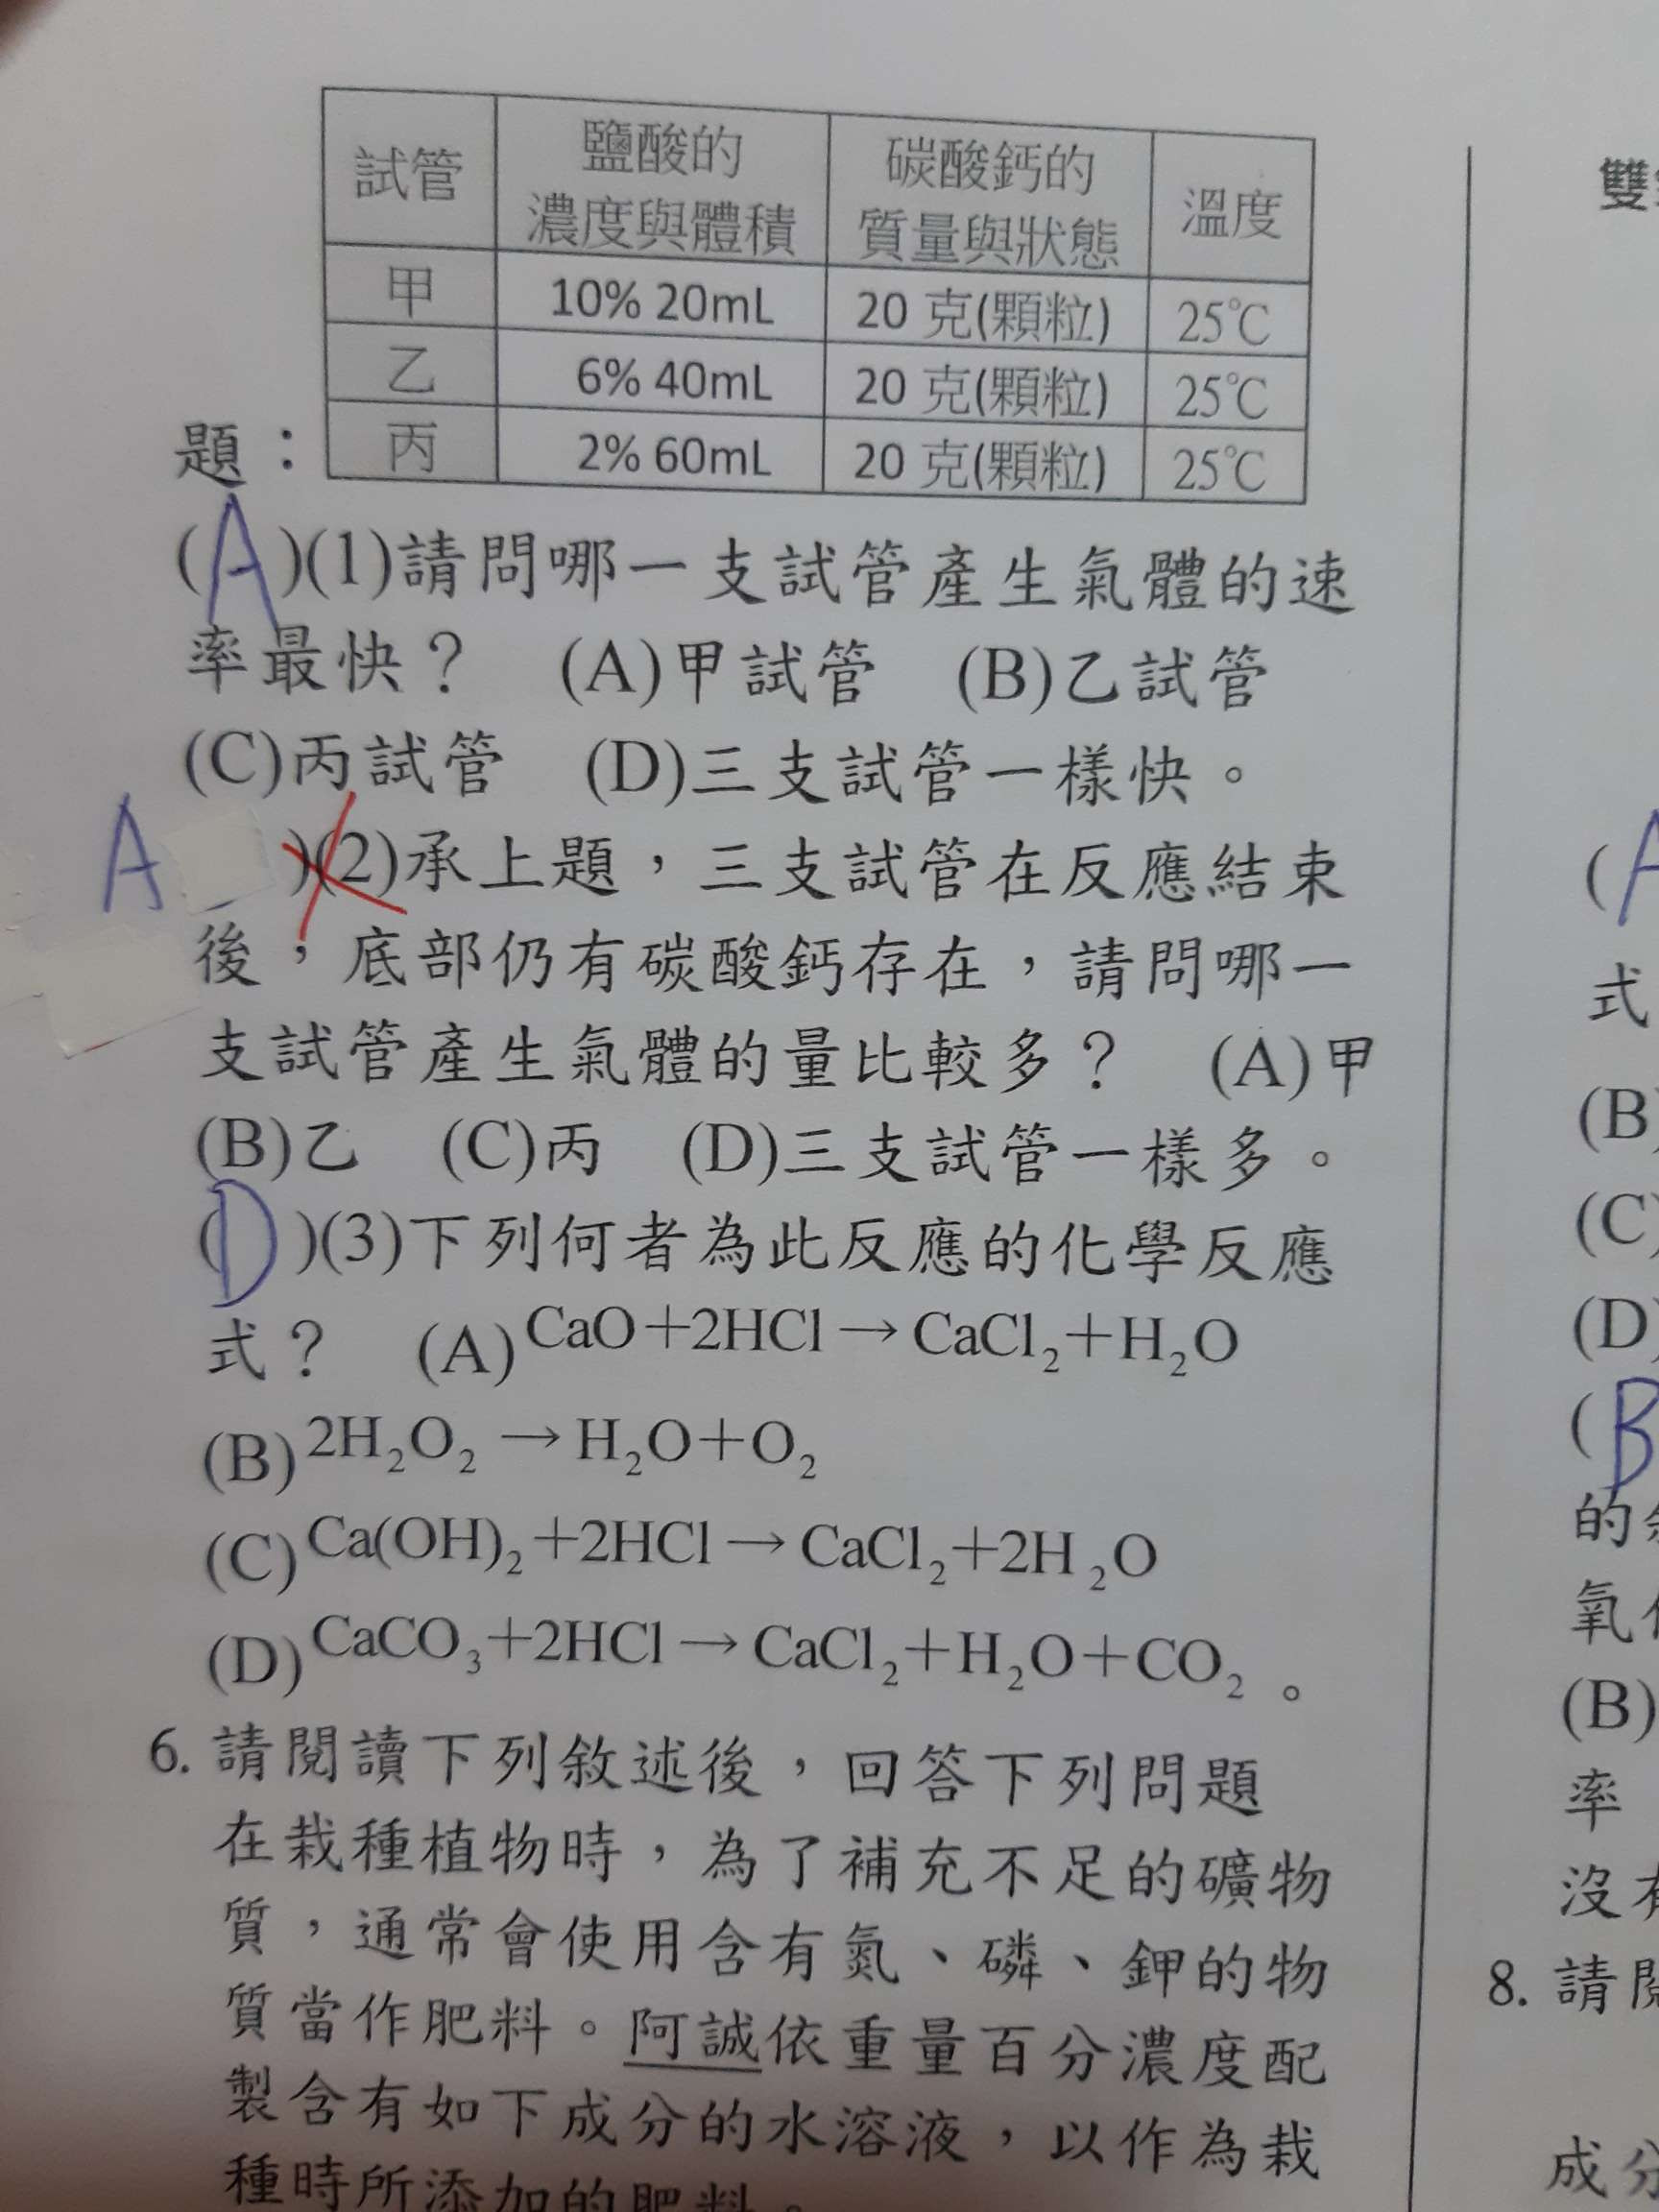 試管 鹽酸的濃度與體積 碳酸鈣的質量與狀態 溫度
甲 10% 20mL 20 克(顆粒) 25℃
乙 6% 40mL 20 克(顆粒) 25℃
丙 2% 60mL 20 克(顆粒) 25℃
題：
(A)(1)請問哪一支試管產生氣體的速
率最快？ (A)甲試管 (B)乙試管
(C)丙試管 (D)三支試管一樣快。
A )(2)承上題，三支試管在反應結束
後，底部仍有碳酸鈣存在，請問哪一
支試管產生氣體的量比較多？ (A)甲
(B)乙 (C)丙 (D)三支試管一樣多。
(D)(3)下列何者為此反應的化學反應
式？ (A)CaO+2HCl→CaCl₂+H₂O
(B)2H₂O₂→H₂O+O₂
(C)Ca(OH)₂+2HCl→CaCl₂+2H₂O
(D)CaCO₃+2HCl→CaCl₂+H₂O+CO₂。
6. 請閱讀下列敘述後，回答下列問題
在栽種植物時，為了補充不足的礦物
質，通常會使用含有氮、磷、鉀的物
質當作肥料。阿誠依重量百分濃度配
製含有如下成分的水溶液，以作為栽
種時所添加的肥料。
(A
式
(B)
(C)
(D)
(B
的
(B)
率
沒
8. 請
成